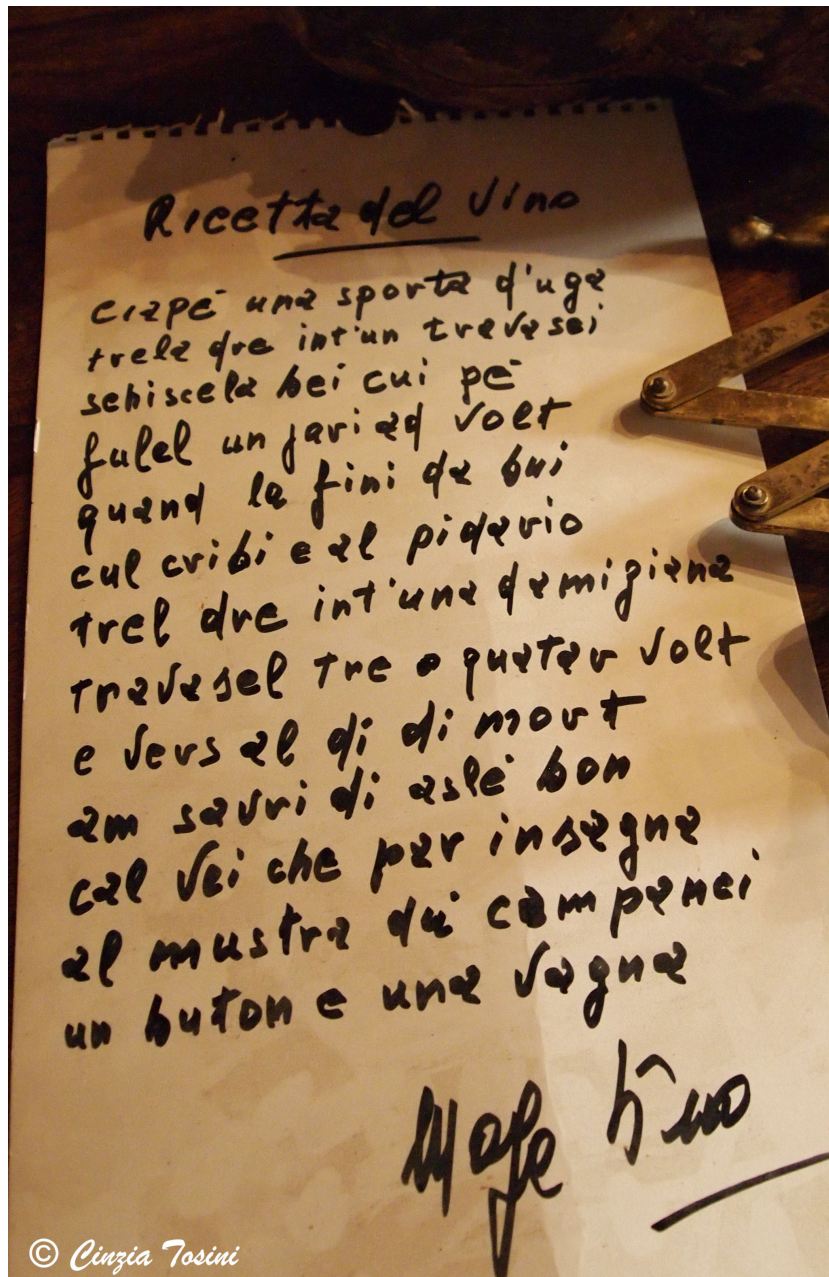 Ricetta del vino
ciapé una sporta d'uga
trela dre int'un travasei
schiscela bei cui pé
fulel un pari ad volt
quand la fini da bui
cul cribi e al pidario
trel dre int'una damigiana
travasel tre o quatar volt
e vers al di di mort
am savri di aslé bon
cal vei che par insagna
al mustra du campanei
un buton e una vagna
Tino
© Cinzia Tosini